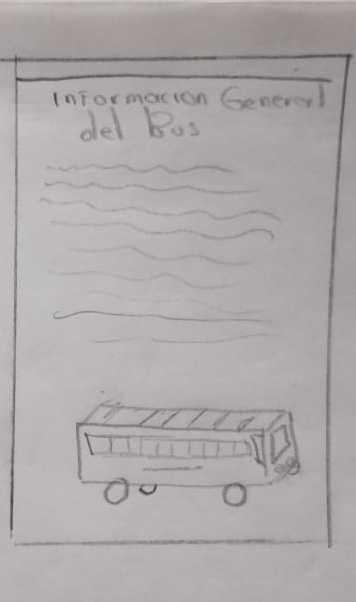 Informacion General
del Bus